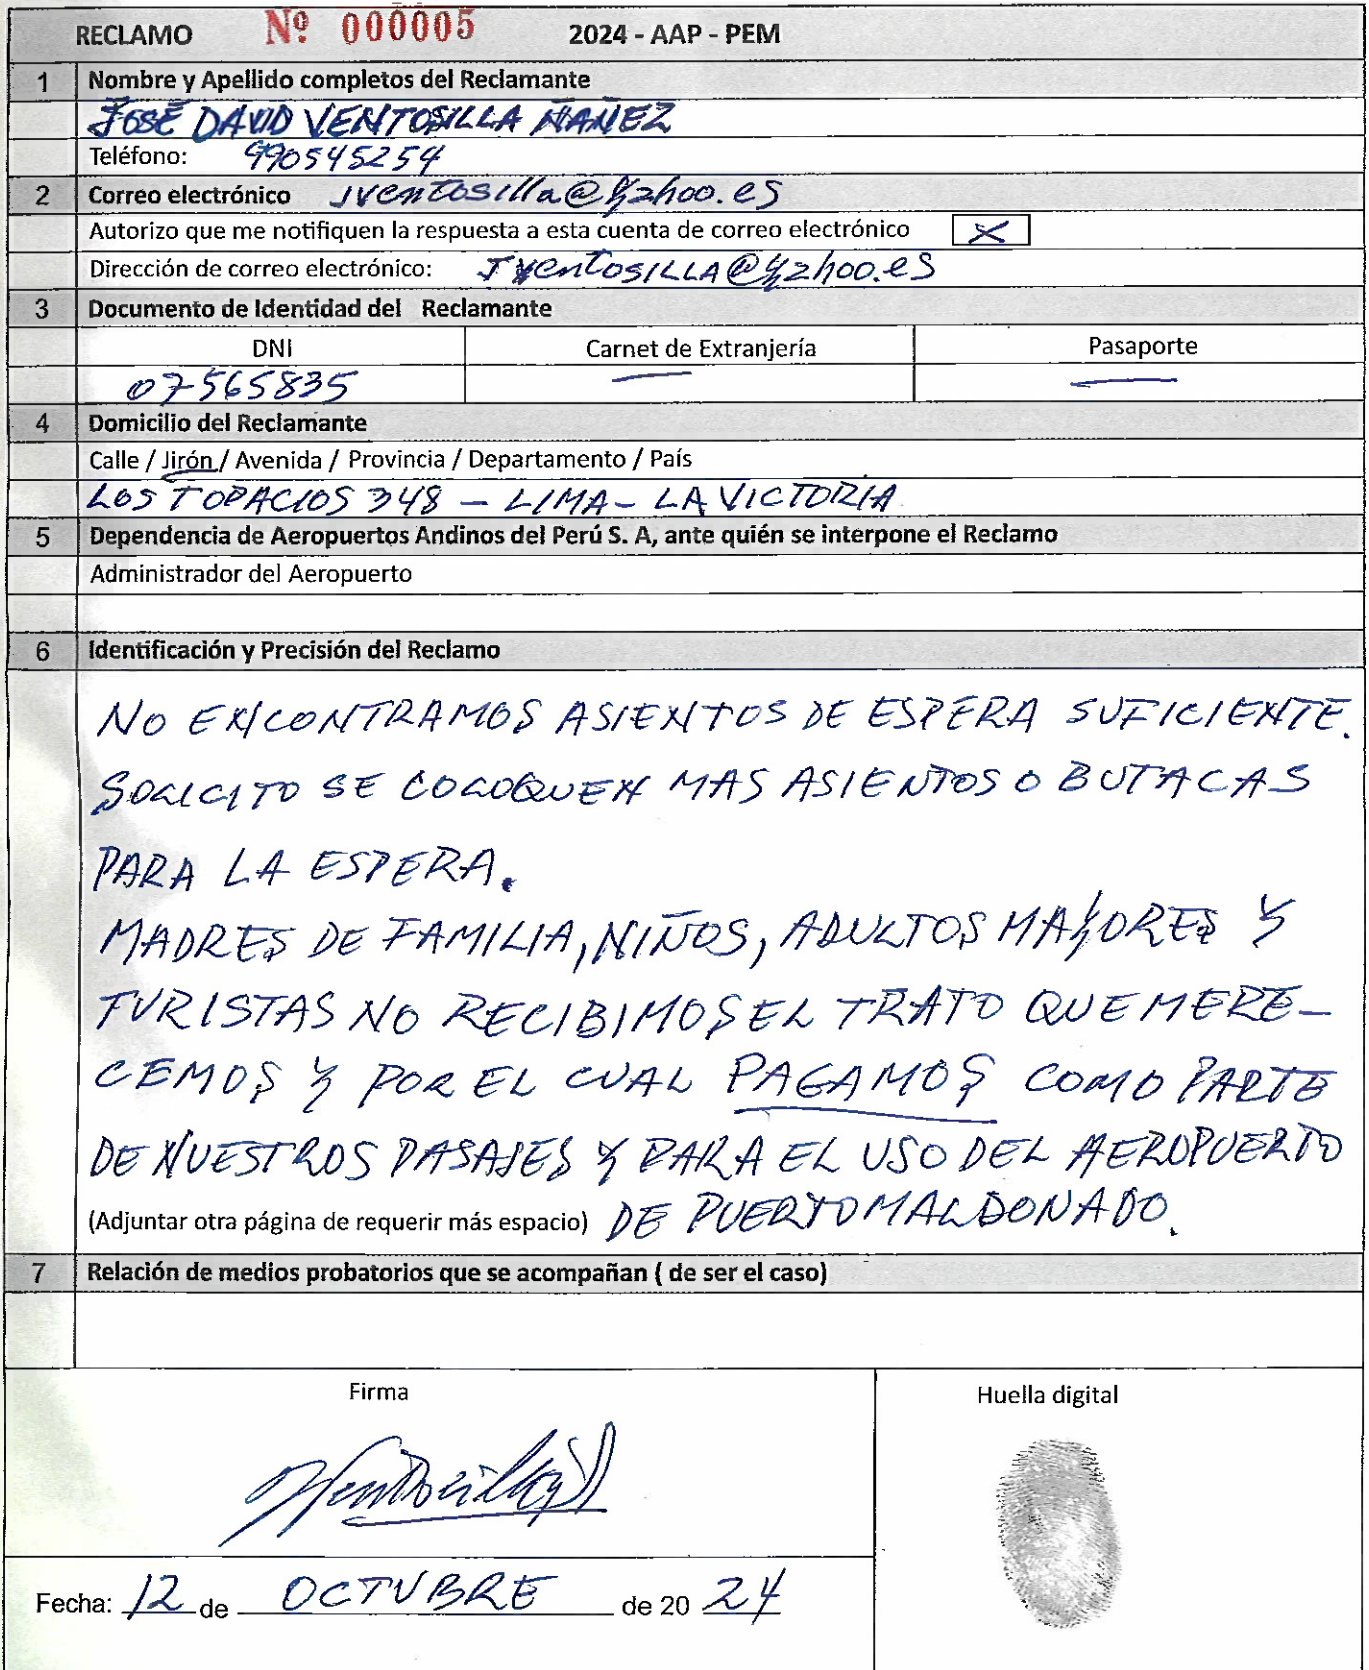 RECLAMO Nº 000005 2024 - AAP - PEM
1 Nombre y Apellido completos del Reclamante
JOSÉ DAVID VENTOSILLA ÑAÑEZ
Teléfono: 990545254
2 Correo electrónico jventosilla@yahoo.es
Autorizo que me notifiquen la respuesta a esta cuenta de correo electrónico X
Dirección de correo electrónico: JVentosILLA@yahoo.es
3 Documento de Identidad del Reclamante
DNI Carnet de Extranjería Pasaporte
07565835 — —
4 Domicilio del Reclamante
Calle / Jirón / Avenida / Provincia / Departamento / País
LOS TOPACIOS 348 - LIMA - LA VICTORIA
5 Dependencia de Aeropuertos Andinos del Perú S. A, ante quién se interpone el Reclamo
Administrador del Aeropuerto
6 Identificación y Precisión del Reclamo
NO ENCONTRAMOS ASIENTOS DE ESPERA SUFICIENTE.
SOLICITO SE COLOQUEN MAS ASIENTOS O BUTACAS
PARA LA ESPERA.
MADRES DE FAMILIA, NIÑOS, ADULTOS MAYORES Y
TURISTAS NO RECIBIMOS EL TRATO QUE MERE-
CEMOS Y POR EL CUAL PAGAMOS COMO PARTE
DE NUESTROS PASAJES Y PARA EL USO DEL AEROPUERTO
(Adjuntar otra página de requerir más espacio) DE PUERTO MALDONADO.
7 Relación de medios probatorios que se acompañan ( de ser el caso)
Firma Huella digital
Ventosilla
Fecha: 12 de OCTUBRE de 20 24